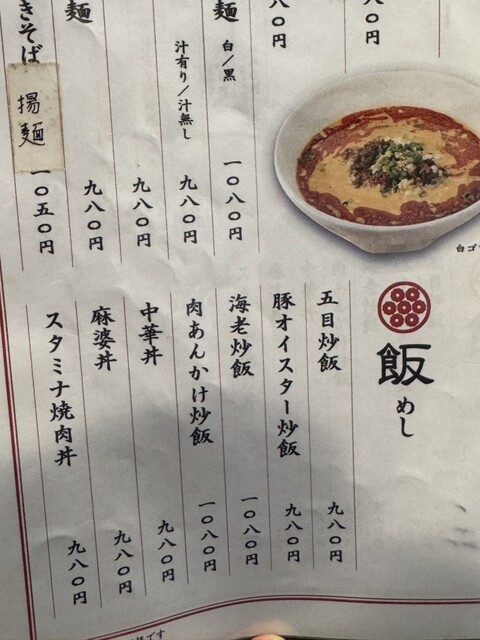 八〇円
八〇円
麺
白/黒
一〇八〇円
汁有り/汁無し
九八〇円
九八〇円
麺
九八〇円
きそば
揚麺
一〇五〇円
白ゴ
飯
めし
五目炒飯
九八〇円
豚オイスター炒飯
九八〇円
海老炒飯
一〇八〇円
肉あんかけ炒飯
一〇八〇円
中華丼
九八〇円
麻婆丼
九八〇円
スタミナ焼肉丼
九八〇円
です